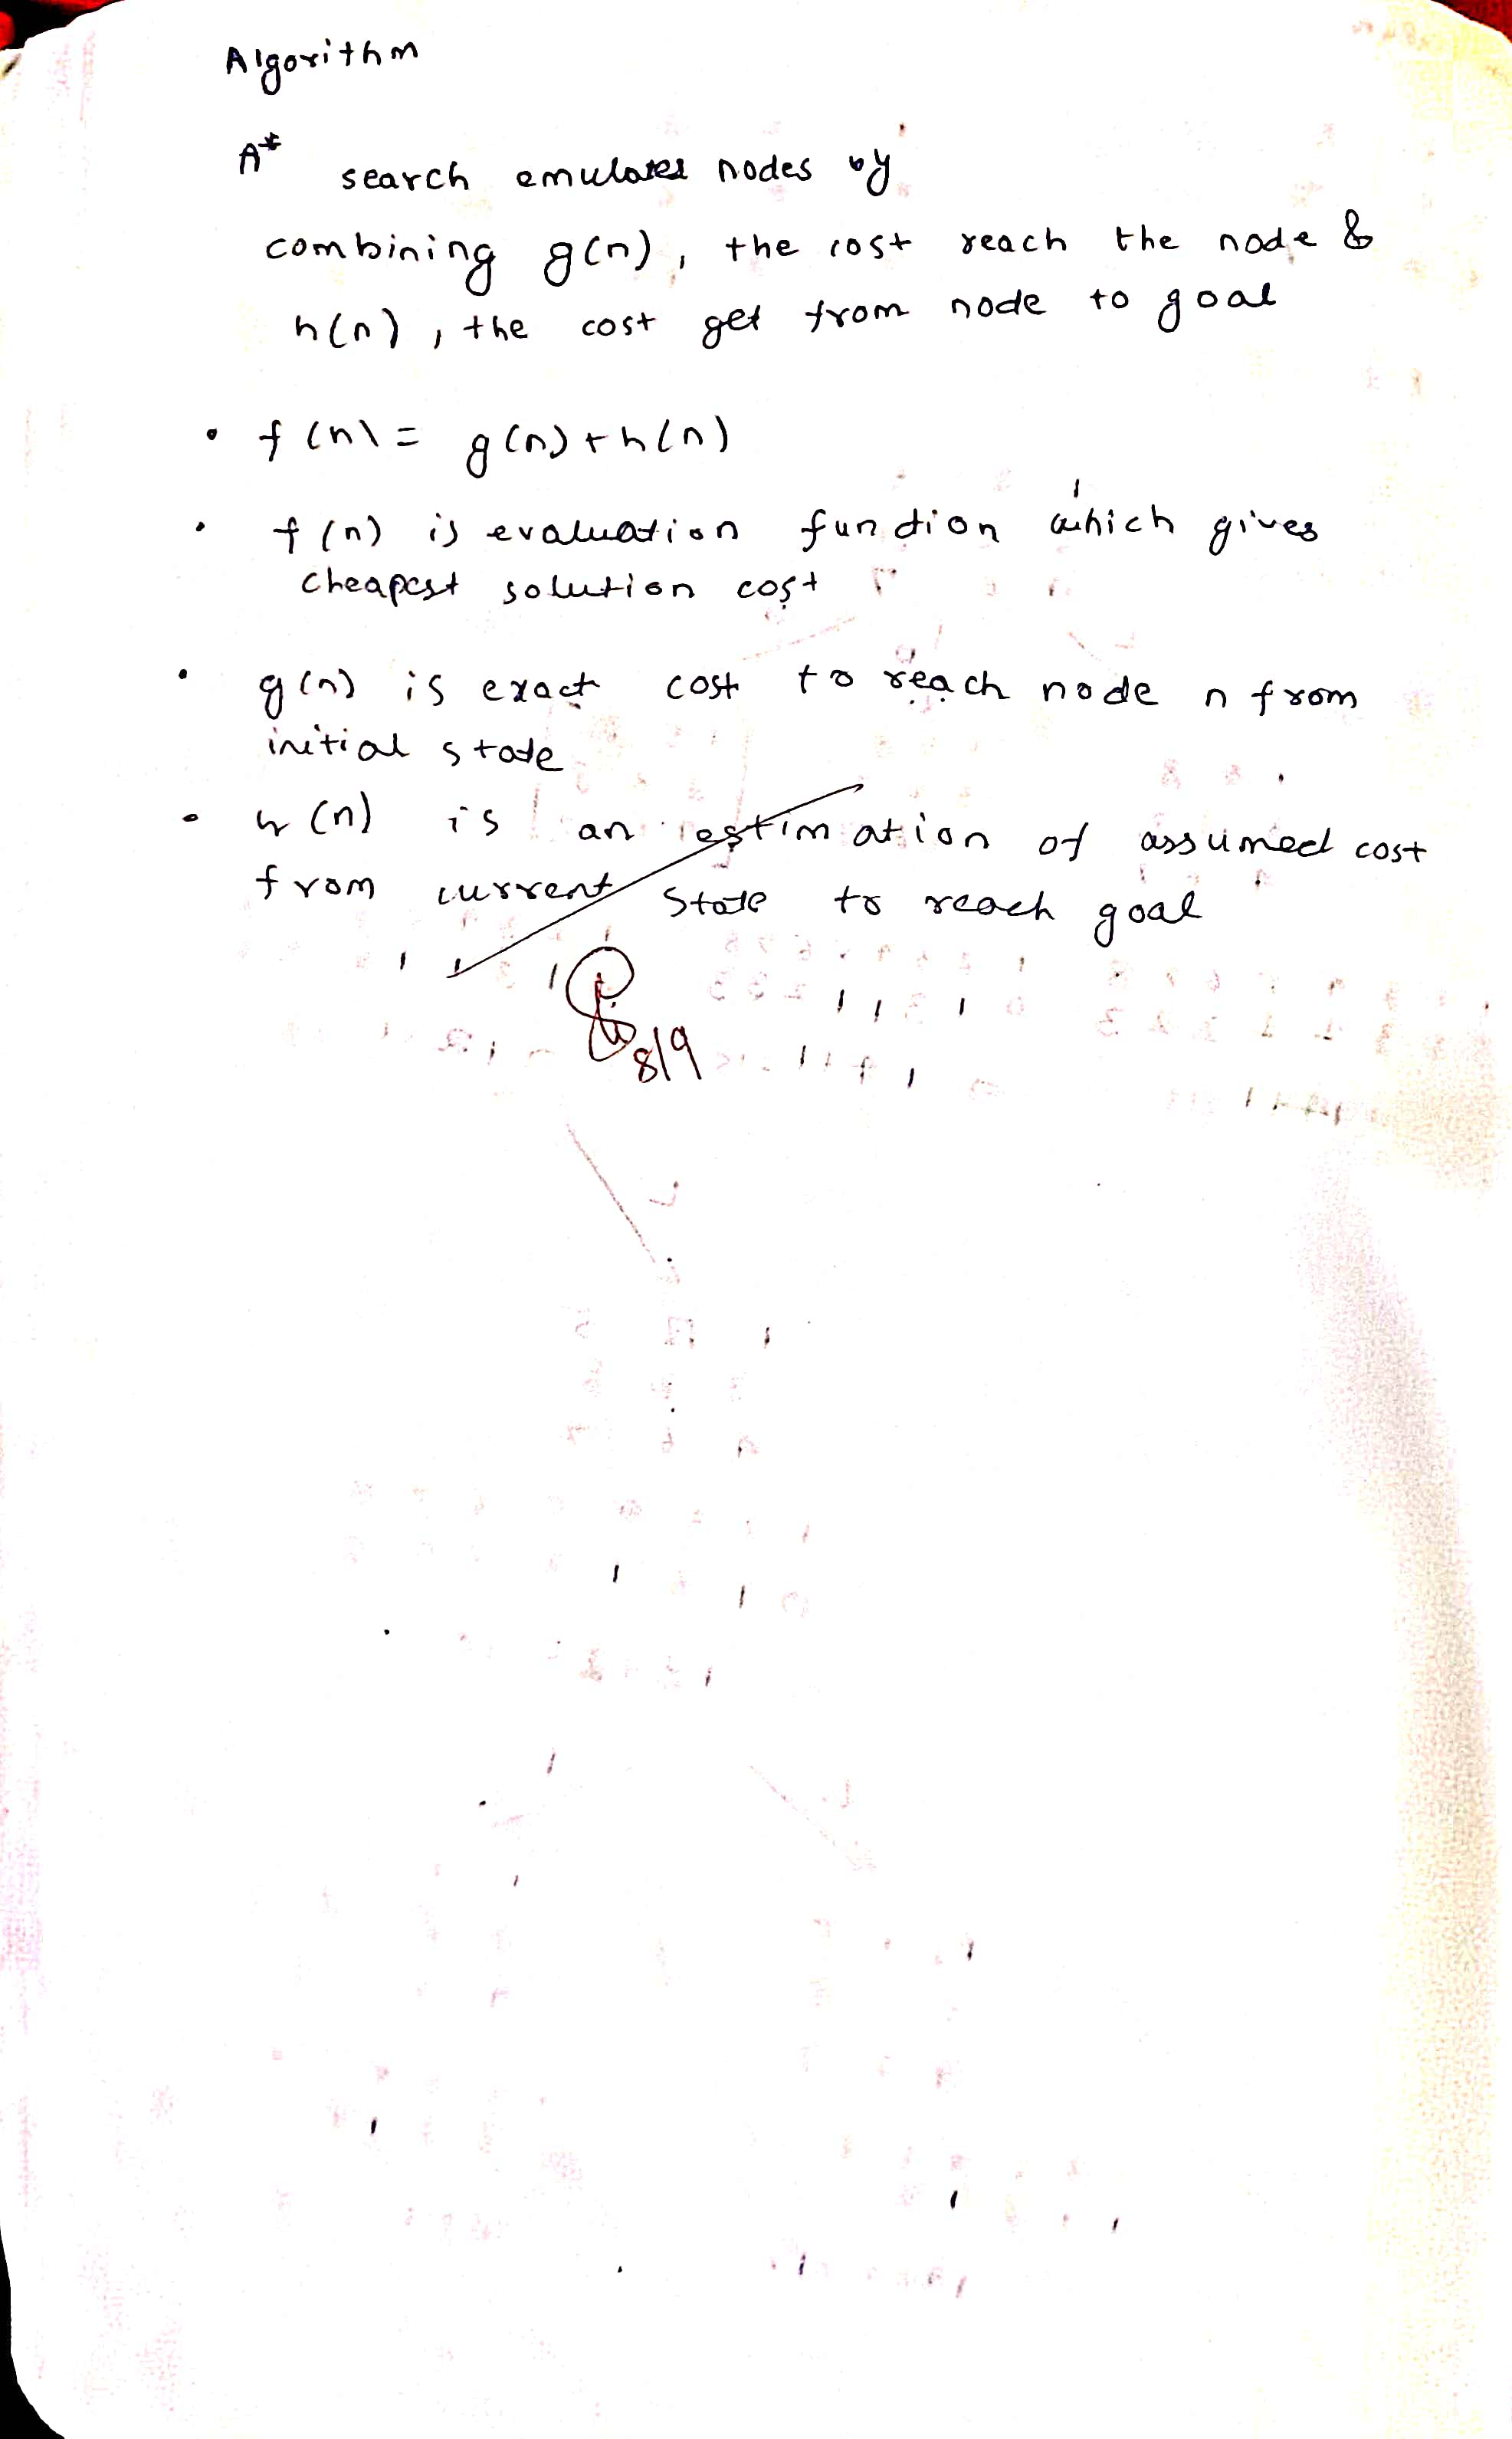 Algorithm
A*
search emulates nodes by
combining g(n), the cost reach the node &
h(n), the cost get from node to goal
• f(n) = g(n) + h(n)
• f(n) is evaluation function which gives
cheapest solution cost
• g(n) is exact cost to reach node n from
initial state
• h(n) is an estimation of assumed cost
from current state to reach goal
8/9